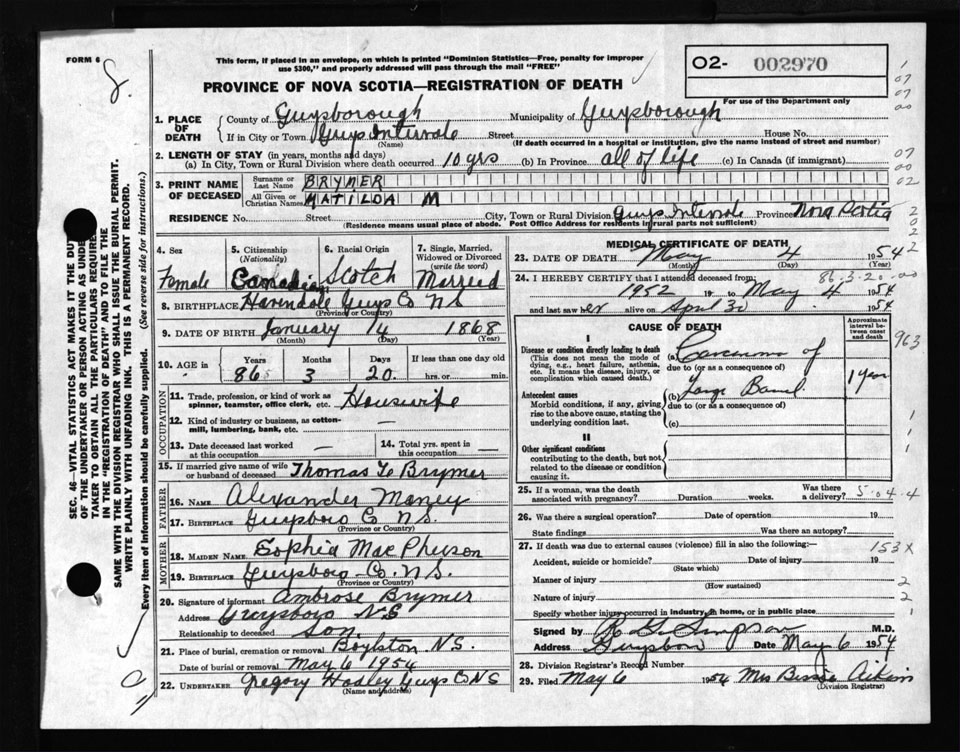 FORM 6
This form, if placed in an envelope, on which is printed "Dominion Statistics—Free, penalty for improper
use $300," and properly addressed will pass through the mail "FREE"
02- 002970
For use of the Department only
PROVINCE OF NOVA SCOTIA—REGISTRATION OF DEATH
1. PLACE OF DEATH
County of Guysborough Municipality of Guysborough
If in City or Town Guys Intervale Street House No.
(Name) (If death occurred in a hospital or institution, give the name instead of street and number)
2. LENGTH OF STAY (in years, months and days)
(a) In City, Town or Rural Division where death occurred 10 yrs (b) In Province all of life (c) In Canada (if immigrant)
3. PRINT NAME OF DECEASED
Surname or Last Name BRYMER
All Given or Christian Names MATILDA M
RESIDENCE No. Street City, Town or Rural Division Guys Intervale Province Nova Scotia
(Residence means usual place of abode. Post Office Address for residents in rural parts not sufficient)
4. Sex
Female
5. Citizenship (Nationality)
Canadian
6. Racial Origin
Scotch
7. Single, Married, Widowed or Divorced (write the word)
Married
8. BIRTHPLACE Havendale Guys Co NS
(Province or Country)
9. DATE OF BIRTH January 14 1868
(Month) (Day) (Year)
10. AGE in Years Months Days If less than one day old
86 3 20 hrs. or min.
OCCUPATION
11. Trade, profession, or kind of work as spinner, teamster, office clerk, etc. Housewife
12. Kind of industry or business, as cotton-mill, lumbering, bank, etc. —
13. Date deceased last worked at this occupation —
14. Total yrs. spent in this occupation —
15. If married give name of wife or husband of deceased Thomas Brymer
FATHER
16. NAME Alexander
17. BIRTHPLACE Guysboro Co N.S.
(Province or Country)
MOTHER
18. MAIDEN NAME Sophia MacPherson
19. BIRTHPLACE Guysboro Co. N.S.
(Province or Country)
20. Signature of informant Ambrose Brymer
Address Guysboro N.S
Relationship to deceased Son
21. Place of burial, cremation or removal Boylston N.S.
Date of burial or removal May 6 1954
22. UNDERTAKER Gregory Hadley Guys Co NS
(Name and address)
MEDICAL CERTIFICATE OF DEATH
23. DATE OF DEATH May 4 1954
(Month) (Day) (Year)
86-3-20-00
24. I HEREBY CERTIFY that I attended deceased from:
1952 19 to May 4 1954
and last saw her alive on April 30 1954
CAUSE OF DEATH
Approximate interval between onset and death
I
Disease or condition directly leading to death
(This does not mean the mode of dying, e.g., heart failure, asthenia, etc. It means the disease, injury, or complication which caused death.)
(a) Carcinoma of
due to (or as a consequence of)
Antecedent causes
Morbid conditions, if any, giving rise to the above cause, stating the underlying condition last.
(b) Large Bowel 1 year
due to (or as a consequence of)
(c)
II
Other significant conditions
contributing to the death, but not related to the disease or condition causing it.
25. If a woman, was the death associated with pregnancy? Duration weeks. Was there a delivery?
5-04-4
26. Was there a surgical operation? Date of operation 19
State findings Was there an autopsy?
27. If death was due to external causes (violence) fill in also the following:—
153X
Accident, suicide or homicide? Date of injury 19
(State which)
Manner of injury
(How sustained)
Nature of injury
Specify whether injury occurred in industry, in home, or in public place
Signed by Simpson M.D.
Address Guysboro Date May 6 1954
28. Division Registrar's Record Number
29. Filed May 6 1954 Mrs Bessie Aikins
(Division Registrar)
963
SEC. 46—VITAL STATISTICS ACT MAKES IT THE DUTY
OF THE UNDERTAKER OR PERSON ACTING AS UNDER-
TAKER TO OBTAIN ALL THE PARTICULARS REQUIRED
IN THE "REGISTRATION OF DEATH" AND TO FILE THE
SAME WITH THE DIVISION REGISTRAR WHO SHALL ISSUE THE BURIAL PERMIT.
WRITE PLAINLY WITH UNFADING INK. THIS IS A PERMANENT RECORD.
Every item of Information should be carefully supplied. (See reverse side for instructions.)